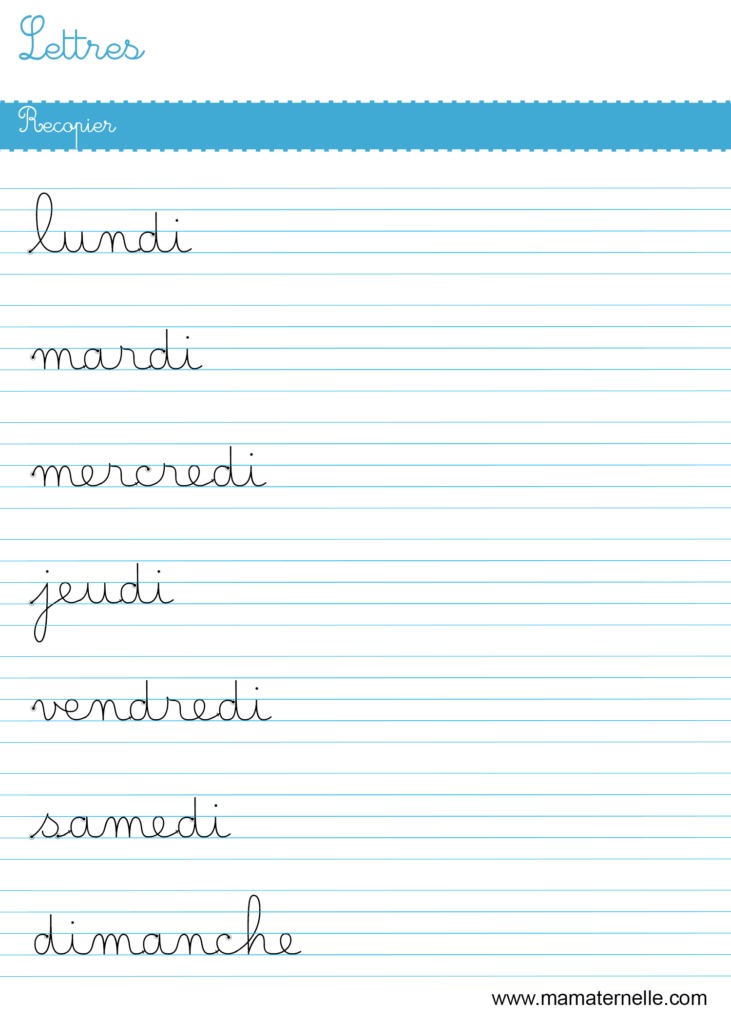 Lettres
Recopier
lundi
mardi
mercredi
jeudi
vendredi
samedi
dimanche
www.mamaternelle.com